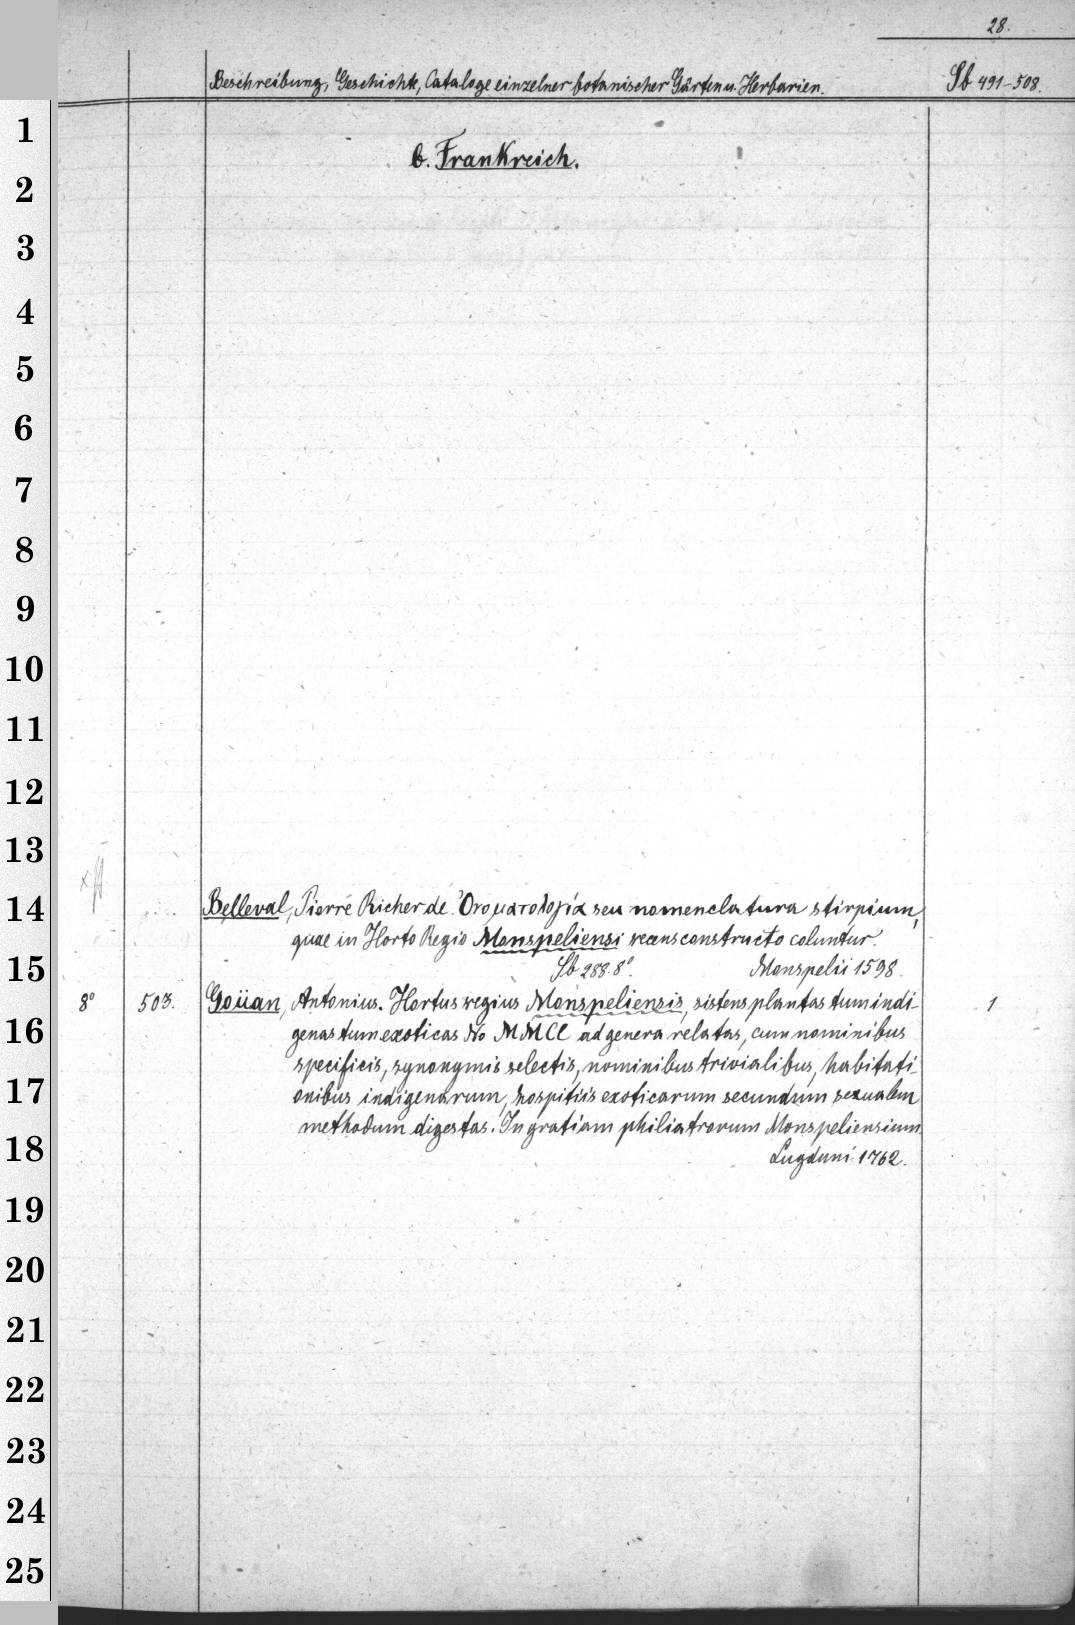 28.
Beschreibung, Geschichte, Cataloge einzelner botanischer Gärten u. Herbarien. Sb 491-508.
b. Frankreich.
1
2
3
4
5
6
7
8
9
10
11
12
13
14
15
16
17
18
19
20
21
22
23
24
25
Belleval, Pierre Richer de. Ὀνοματολογία seu nomenclatura stirpium,
quae in Horto Regio Monspeliensi recens constructo coluntur.
Sb 288. 8°. Monspelii 1598.
8° 503. Goüan, Antonius. Hortus regius Monspeliensis, sistens plantas tum indi- 1
genas tum exoticas No MMCC ad genera relatas, cum nominibus
specificis, synonymis selectis, nominibus trivialibus, habitati-
onibus indigenarum, hospitiis exoticarum secundum sexualem
methodum digestas. In gratiam philiatrorum Monspeliensium.
Lugduni 1762.